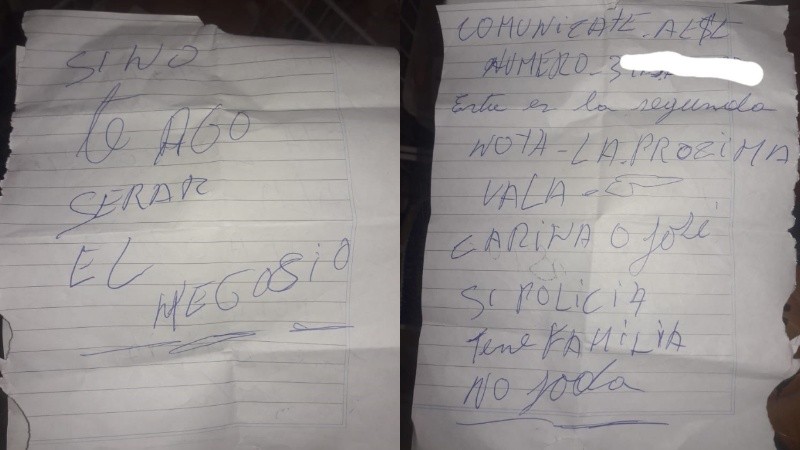 SINO
te AGO
SERAR
EL
NEGOSIO
COMUNICATE - AL
NUMERO - 3
Esta es la segunda
NOTA - LA PROZIMA
VALA -
CARINA O José
SI POLICIA
Tene FAMILIA
NO Joda